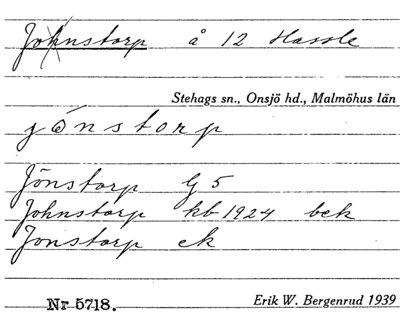 Johnstorp å 12 Hassle
Stehags sn., Onsjö hd., Malmöhus län
jönstorp
Jönstorp G5
Johnstorp kb 1924 bek
Jonstorp ek
Nr 5718. Erik W. Bergenrud 1939